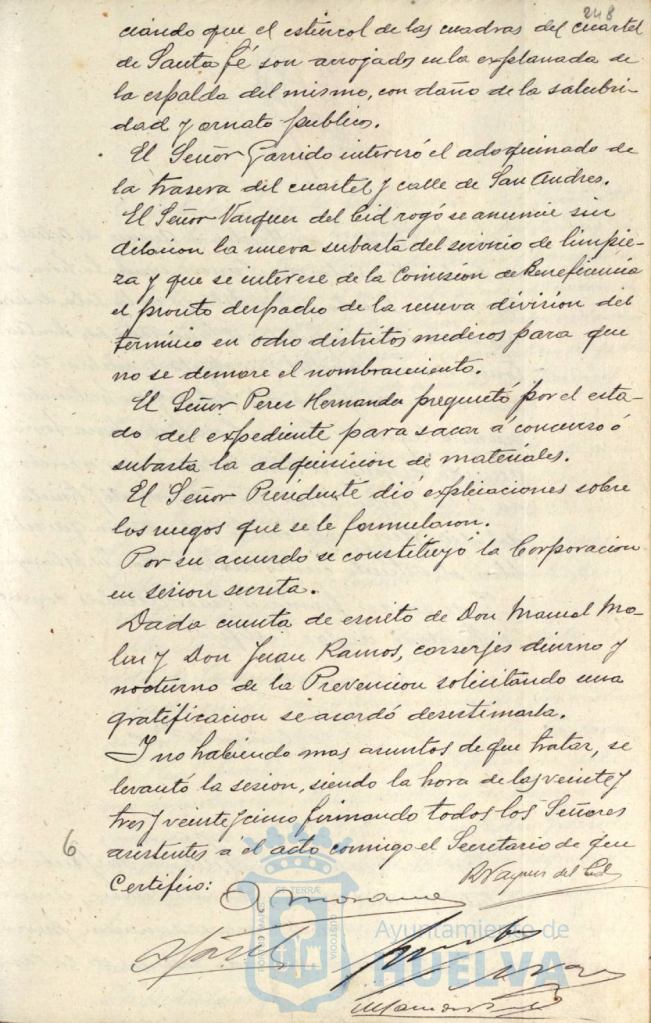 248
ciando que el estiercol de las cuadras del cuartel
de Santa Fé son arrojados en la explanada de
la espalda del mismo, con daño de la salubri-
dad y ornato publico.
El Señor Garrido interesó el adoquinado de
la trasera del cuartel y calle de San Andres.
El Señor Vazquez del Cid rogó se anuncie sin
dilacion la nueva subasta del servicio de limpie-
za y que se interese de la Comision de Beneficencia
el pronto despacho de la nueva division del
termino en ocho distritos medicos para que
no se demore el nombramiento.
El Señor Perez Hernandez preguntó por el esta-
do del expediente para sacar á concurso ó
subasta la adquisicion de materiales.
El Señor Presidente dió explicaciones sobre
los ruegos que se le formularon.
Por su acuerdo se constituyó la Corporacion
en sesion secreta.
Dada cuenta de escrito de Don Manuel Mo-
y Don Juan Ramos, conserjes diurno y
nocturno de la Prevencion solicitando una
gratificacion se acordó desestimarla.
Y no habiendo mas asuntos de que tratar, se
levantó la sesion, siendo la hora de las veinte y
tres y veinte y cinco firmando todos los Señores
asistentes a el acto conmigo el Secretario de que
Certifico:
6
R Vazquez del Cid
PORTUS MARIS
ET TERRÆ
CUSTODIA
Ayuntamiento de
HUELVA